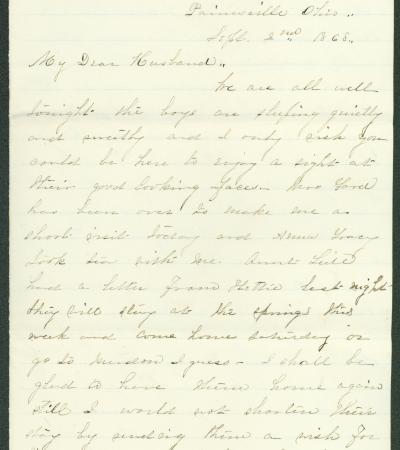 Painesville Ohio,,
Sept. 2nd 1868,,
My Dear Husband,,
We are all well
tonight the boys are sleeping quietly
and sweetly and I only wish you
could be here to enjoy a sight at
their good looking faces. Mrs Ford
has been over to make me a
short visit today and Anna Tracy
took tea with me. Aunt
had a letter from Hettie last night
they will stay at the springs this
week and come home saturday or
go to Hudson I guess - I shall be
glad to have them home again
still I would not shorten their
stay by sending them a wish for